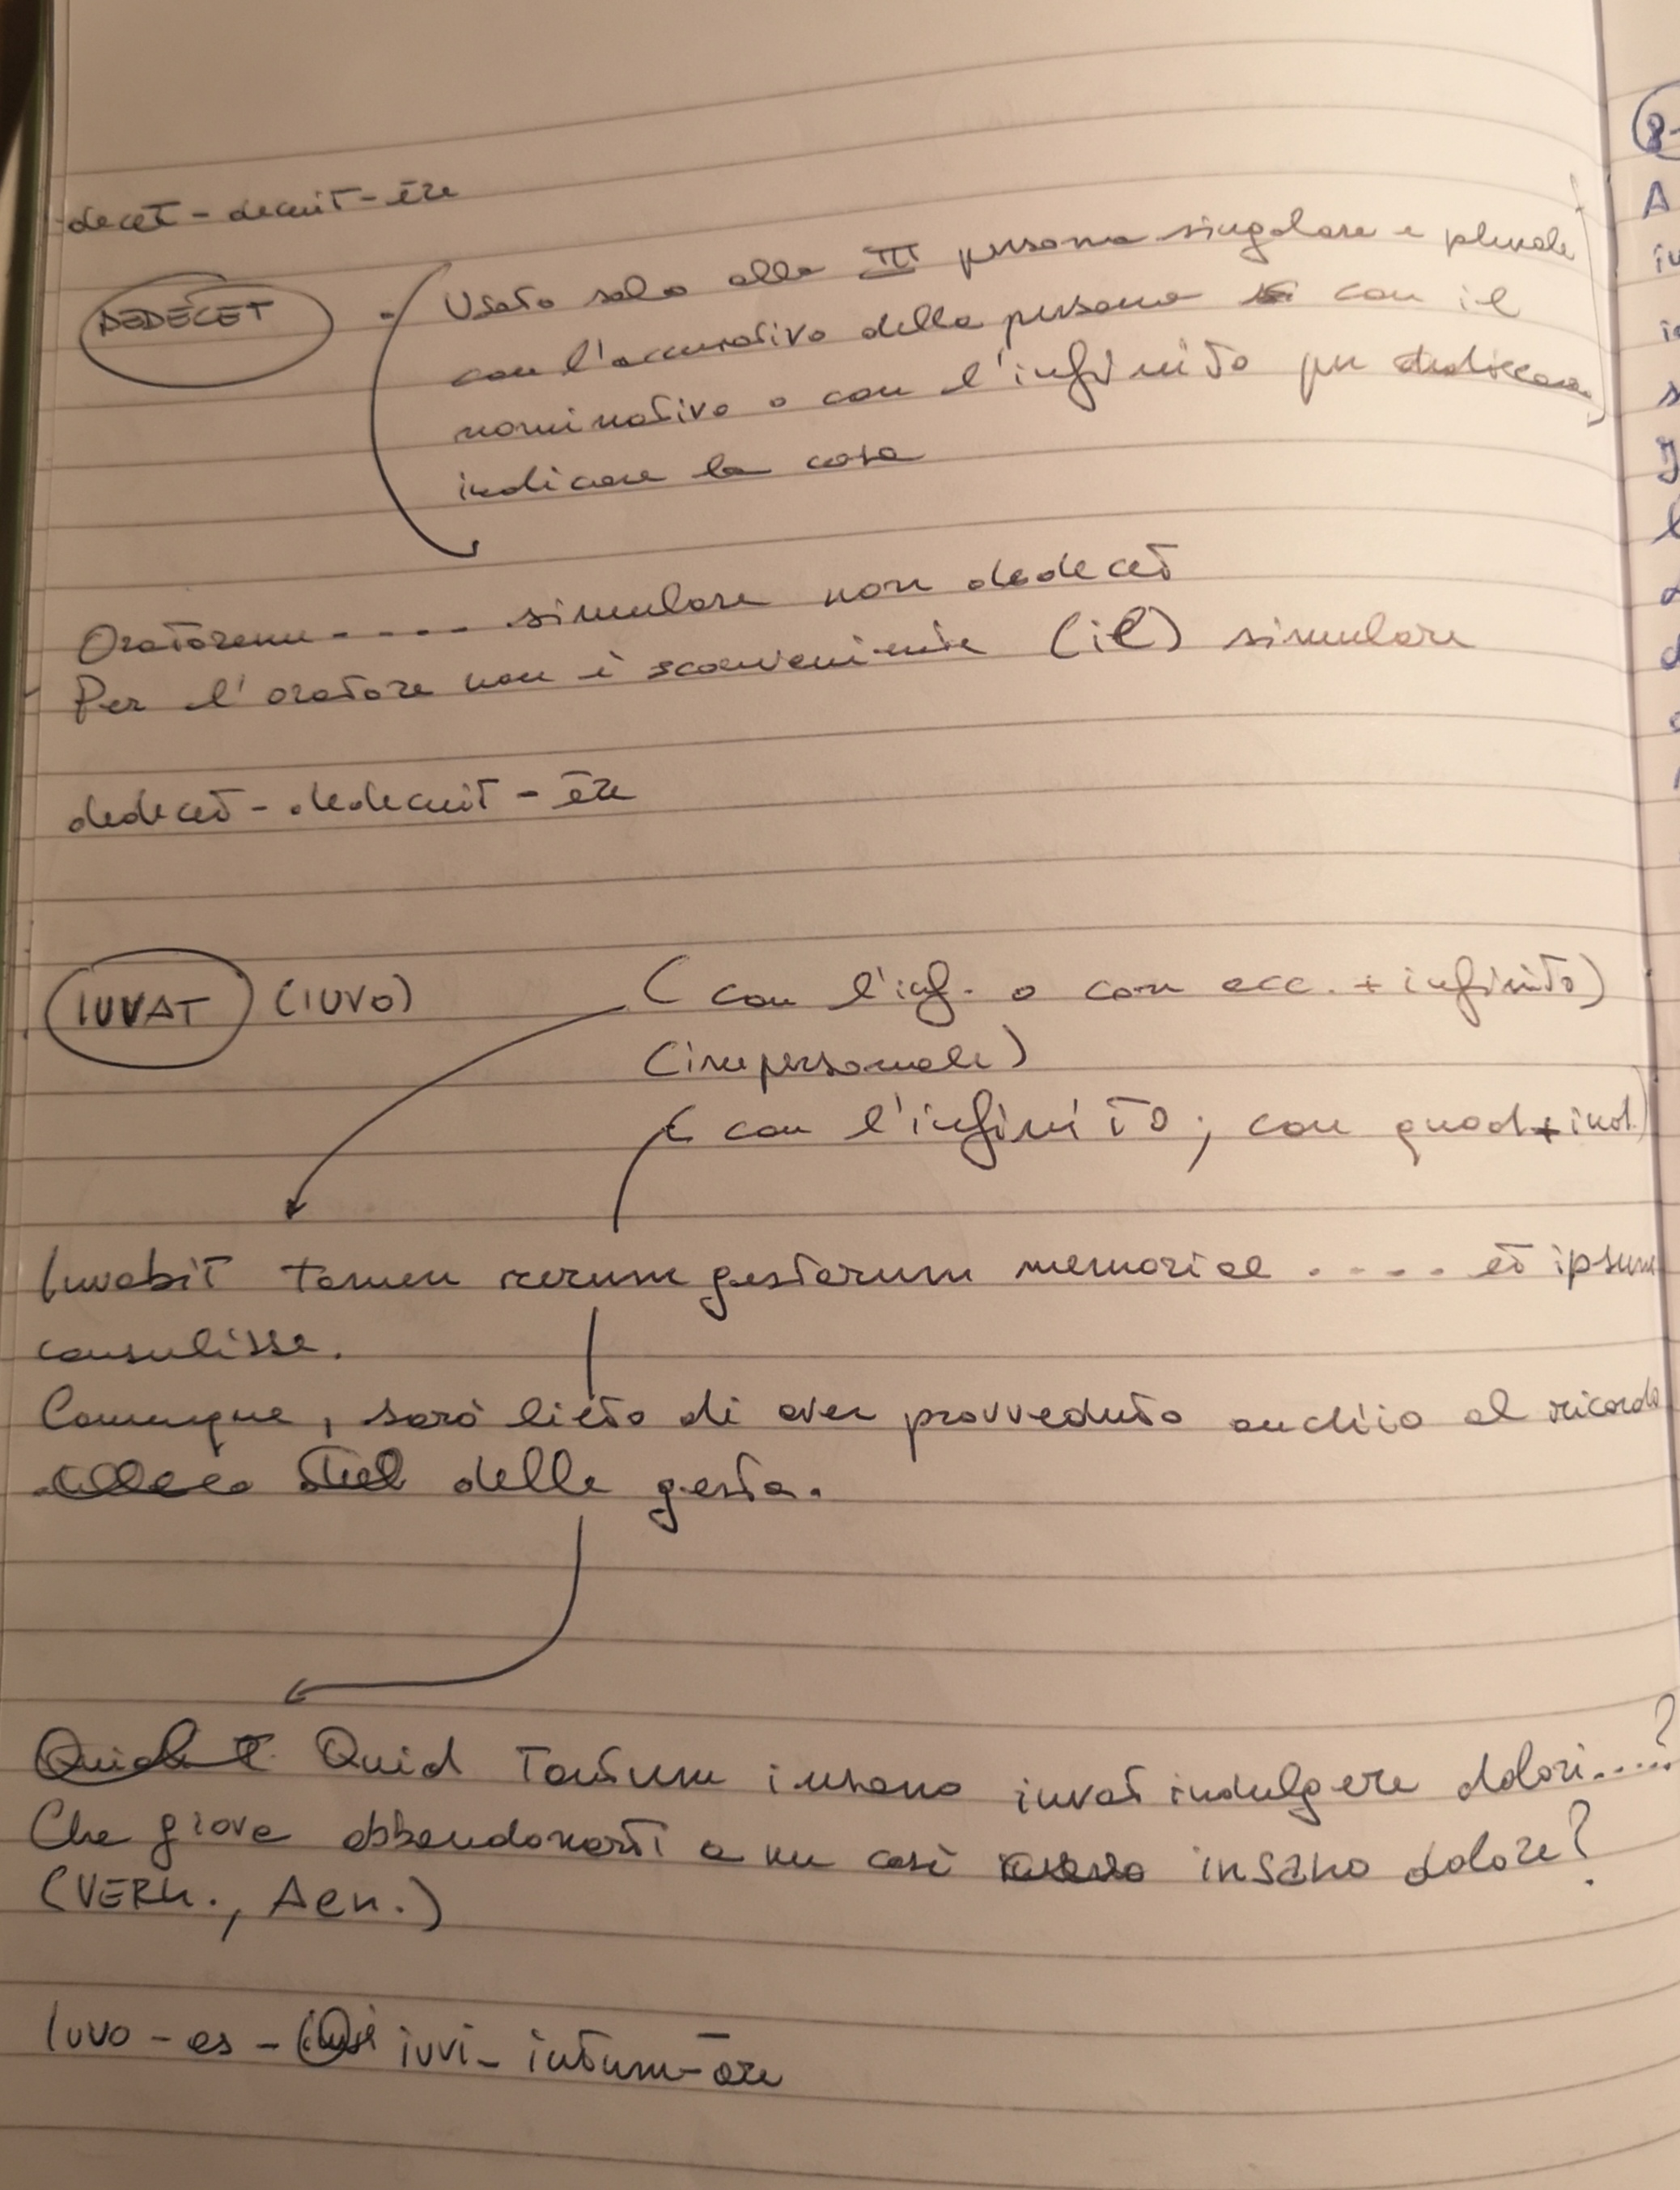 decet - decuit - ēre
DEDECET - Usato solo alla III persona singolare e plurale
con l'accusativo della persona con il
nominativo o con l'infinito per
indicare la cosa
Oratorem - - - - simulare non dedecet
Per l'oratore non è sconveniente (il) simulare
dedecet - dedecuit - ēre
IUVAT (IUVO) (con l'inf. o con acc. + infinito)
(impersonale)
(con l'infinito; con quod + ind.)
Iuvabit tamen rerum gestarum memoriae . . . . et ipsum
consulisse.
Comunque, sarò lieto di aver provveduto anch'io al ricordo
delle gesta.
Quid tantum insano iuvat indulgere dolori.....?
Che giova abbandonarti a un così insano dolore?
(VERG., Aen.)
Iuvo - as - iuvi - iutum - āre
8-
A